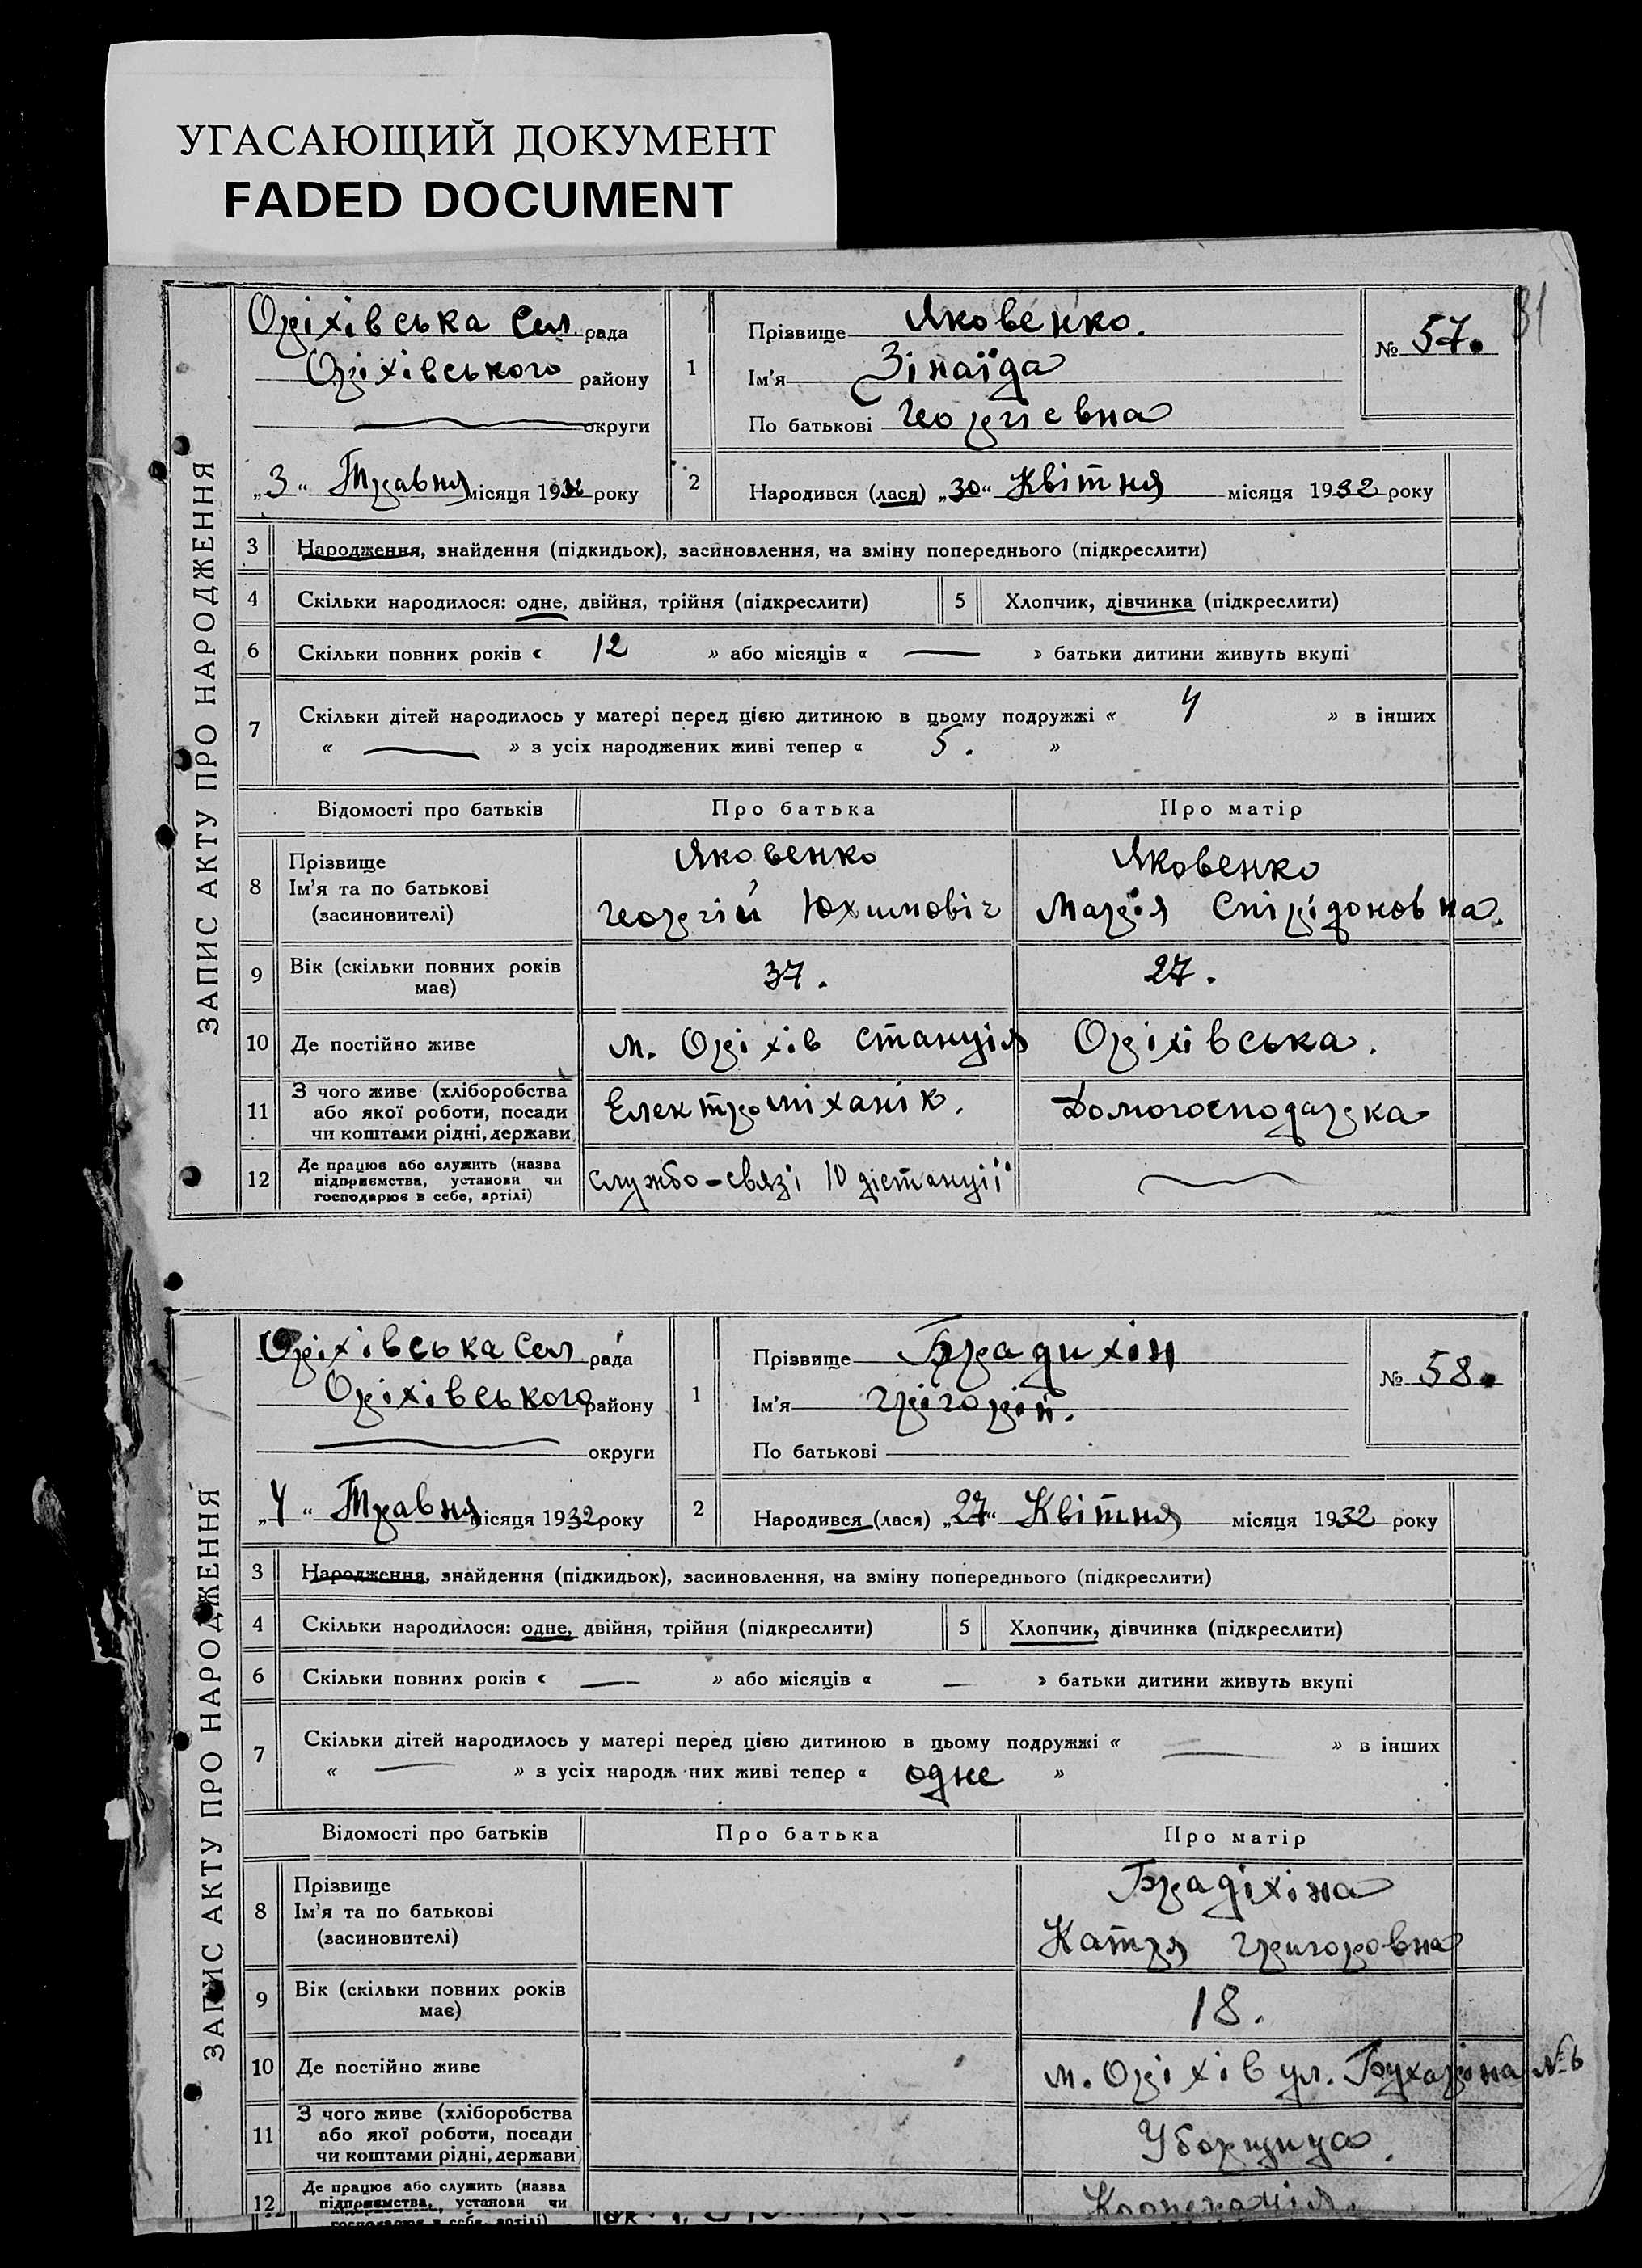 УГАСАЮЩИЙ ДОКУМЕНТ
FADED DOCUMENT
81
ЗАПИС АКТУ ПРО НАРОДЖЕННЯ
Оріхівська Сел. рада
Оріхівського району
округи
„3“ Травня місяця 1932 року
1
Прізвище Яковенко.
Ім'я Зінаїда
По батькові Георгієвна
№ 57.
2
Народився (лася) „30“ Квітня місяця 1932 року
3 Народження, знайдення (підкидьок), засиновлення, на зміну попереднього (підкреслити)
4 Скільки народилося: одне, двійня, трійня (підкреслити) 5 Хлопчик, дівчинка (підкреслити)
6 Скільки повних років « 12 » або місяців « — » батьки дитини живуть вкупі
7 Скільки дітей народилось у матері перед цією дитиною в цьому подружжі « 4 » в інших
« — » з усіх народжених живі тепер « 5. »
Відомості про батьків Про батька Про матір
8 Прізвище
Ім'я та по батькові
(засиновителі)
Яковенко
Георгій Юхимовіч
Яковенко
Марія Спірідоновна.
9 Вік (скільки повних років
має)
37.
27.
10 Де постійно живе м. Оріхів станція Оріхівська.
11 З чого живе (хліборобства
або якої роботи, посади
чи коштами рідні, держави
Електроміханік.
Домогосподарка
12 Де працює або служить (назва
підприємства, установи чи
господарює в себе, артілі)
Службо-связі 10 дістанціїі
—
ЗАПИС АКТУ ПРО НАРОДЖЕННЯ
Оріхівська Сел рада
Оріхівського району
округи
„4“ Травня місяця 1932 року
1
Прізвище Брадихін
Ім'я Грігорій.
По батькові
№ 58.
2
Народився (лася) „27“ Квітня місяця 1932 року
3 Народження, знайдення (підкидьок), засиновлення, на зміну попереднього (підкреслити)
4 Скільки народилося: одне, двійня, трійня (підкреслити) 5 Хлопчик, дівчинка (підкреслити)
6 Скільки повних років « — » або місяців « — » батьки дитини живуть вкупі
7 Скільки дітей народилось у матері перед цією дитиною в цьому подружжі « — » в інших
« — » з усіх народж них живі тепер « одне »
Відомості про батьків Про батька Про матір
8 Прізвище
Ім'я та по батькові
(засиновителі)
Брадіхіна
Катря Григоровна
9 Вік (скільки повних років
має)
18.
10 Де постійно живе м. Оріхів ул. Бухаріна №6
11 З чого живе (хліборобства
або якої роботи, посади
чи коштами рідні, держави
Уборщица.
12 Де працює або служить (назва
підприємства, установи чи
господарює в себе, артілі)